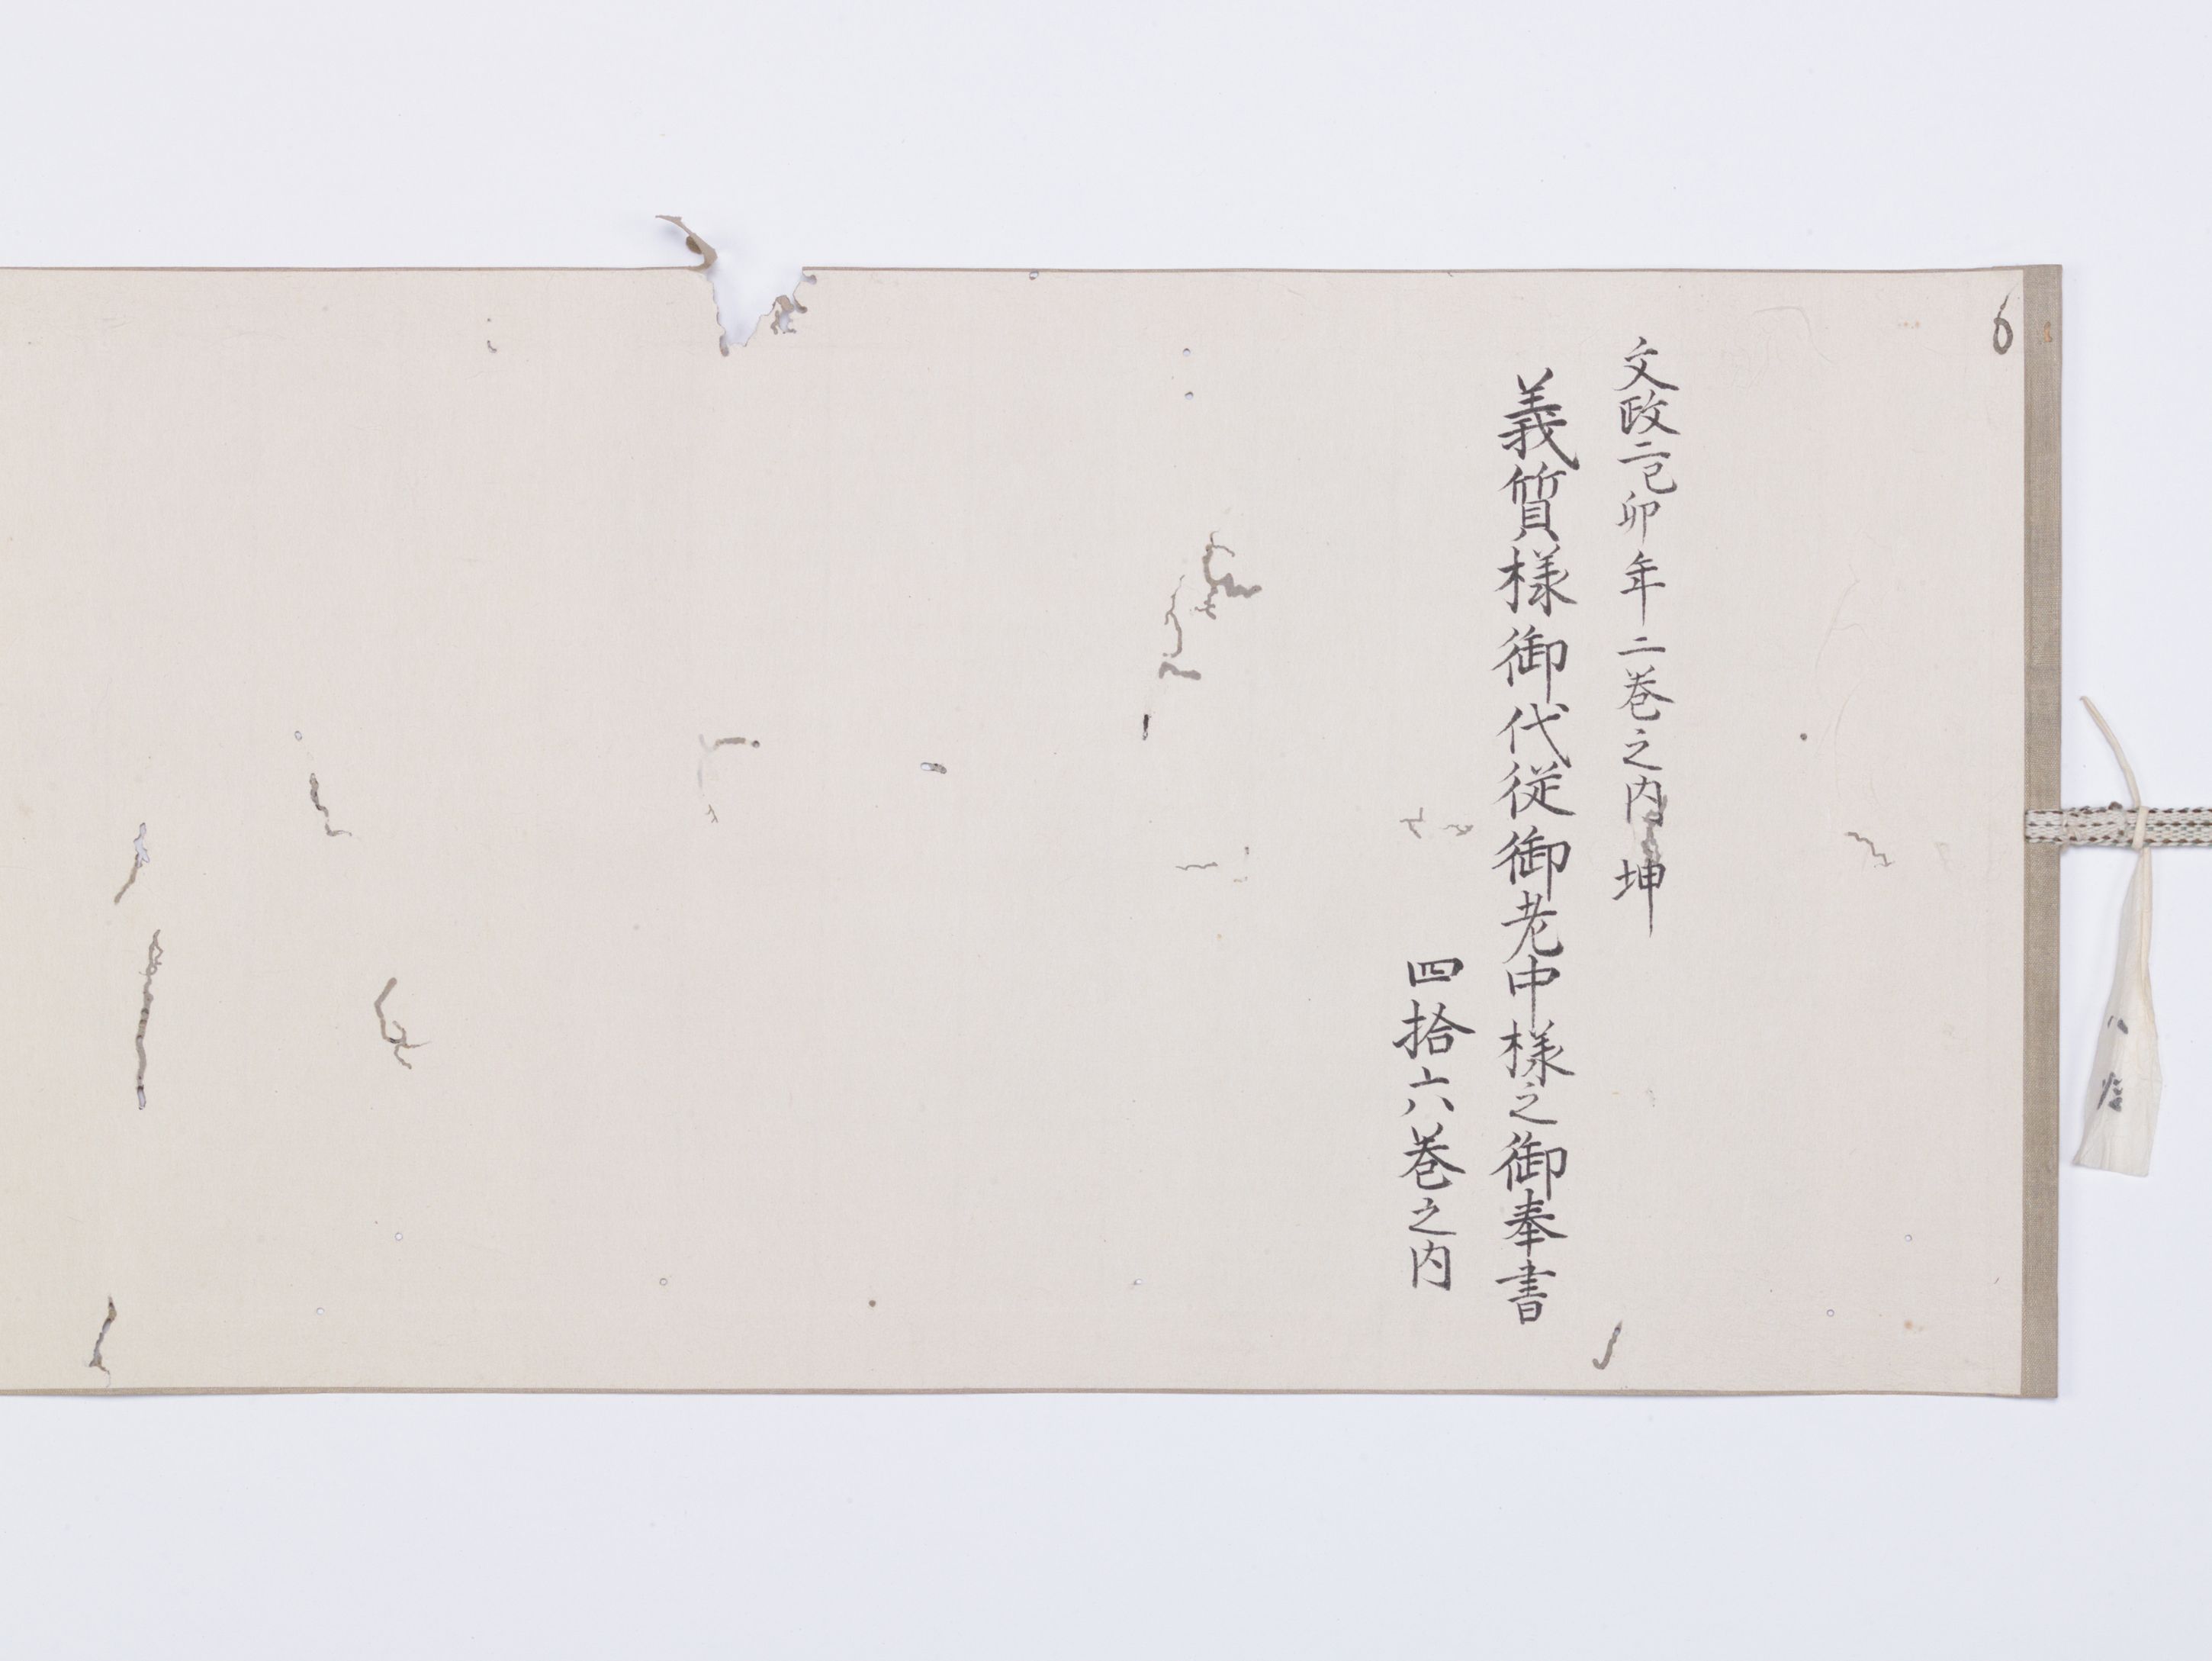 文政二己卯年二巻之内坤
義質様御代従御老中様之御奉書
四拾六巻之内
6